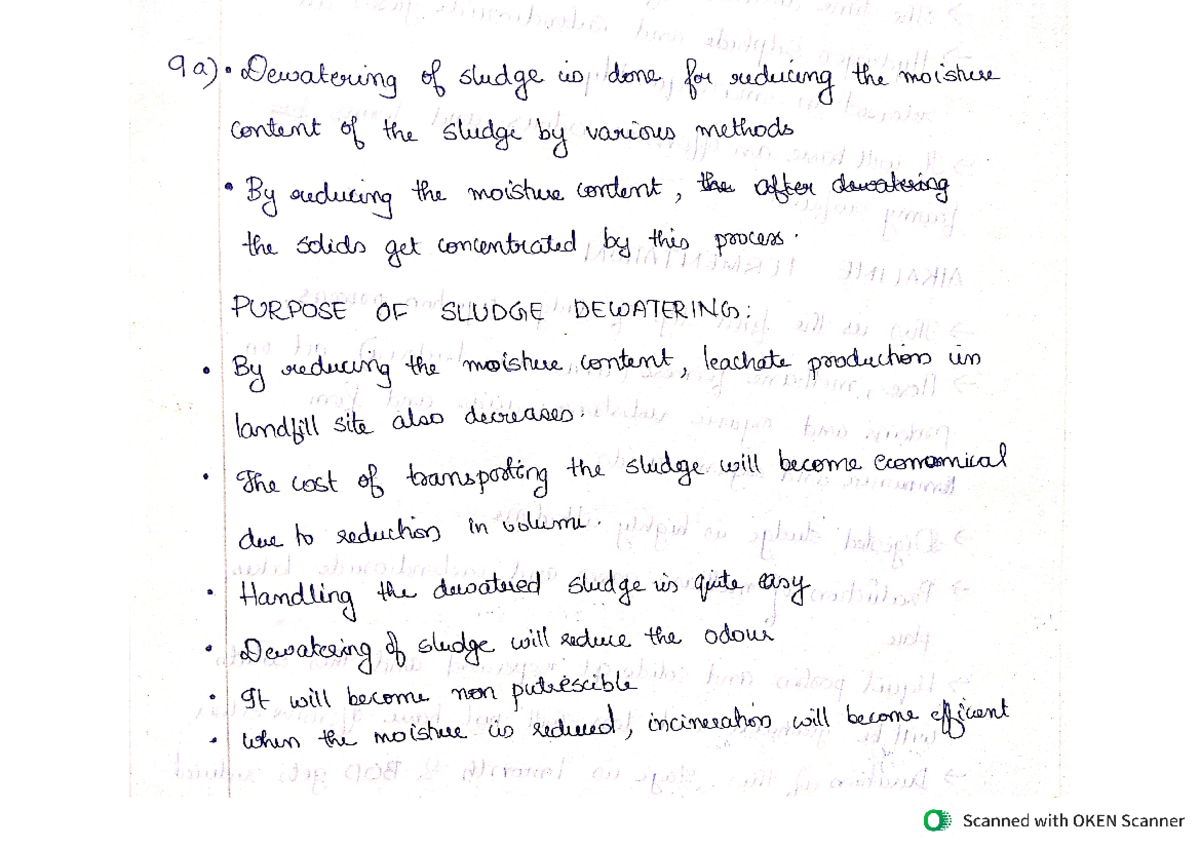 9 a) • Dewatering of sludge is done for reducing the moisture
content of the sludge by various methods
• By reducing the moisture content, the after dewatering
the solids get concentrated by this process.
PURPOSE OF SLUDGE DEWATERING:
• By reducing the moisture content, leachate production in
landfill site also decreases.
• The cost of transporting the sludge will become economical
due to reduction in volume.
• Handling the dewatered sludge is quite easy
• Dewatering of sludge will reduce the odour
• It will become non putrescible
• When the moisture is reduced, incineration will become efficent
Scanned with OKEN Scanner